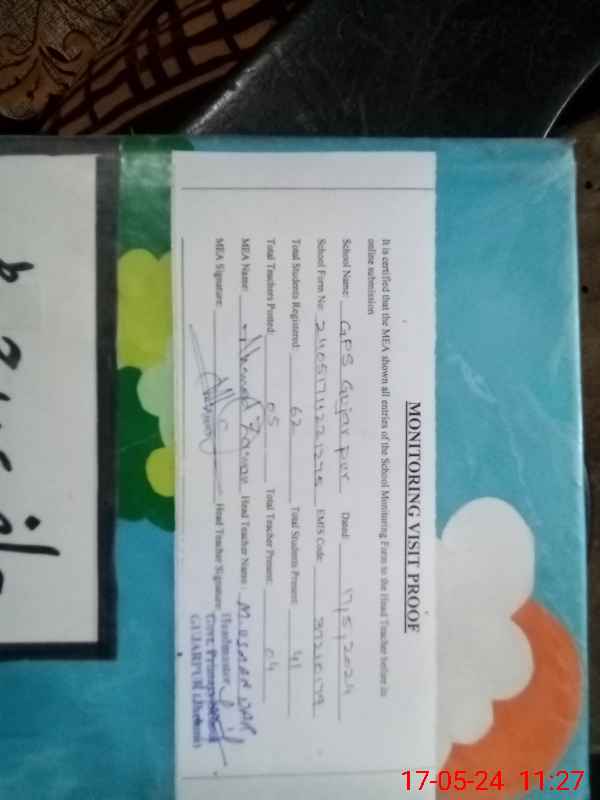 MONITORING VISIT PROOF
It is certified that the MEA shown all entries of the School Monitoring Form to the Head Teacher before in
online submission
School Name: GPS Gujar pur Dated: 17,5,2024
School Form No: EMIS Code: 37210179
Total Students Registered: 62 Total Students Present: 41
Total Teachers Posted: 05 Total Teacher Present: 04
MEA Name: Head Teacher Name: M. USMAN DAR
MEA Signature: Head Teacher Signature:
Headmaster
Govt. Primary
GUJARPUR (Jhelum)
17-05-24 11:27